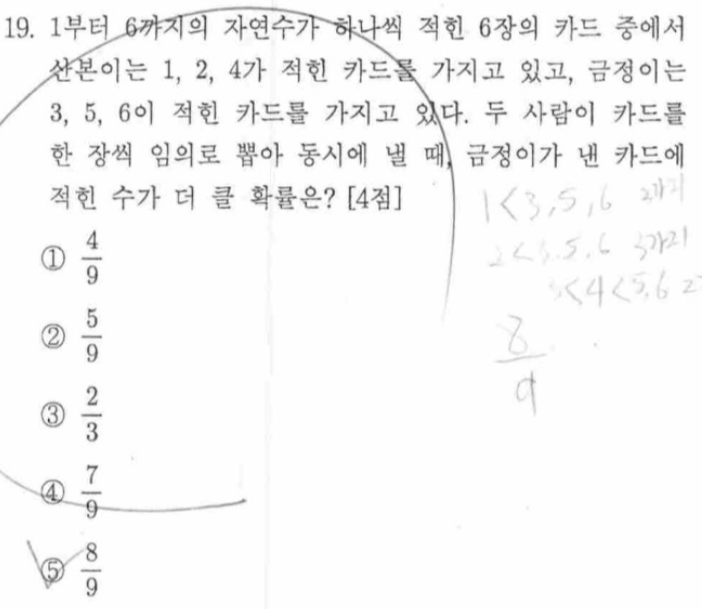 19. 1부터 6까지의 자연수가 하나씩 적힌 6장의 카드 중에서
산본이는 1, 2, 4가 적힌 카드를 가지고 있고, 금정이는
3, 5, 6이 적힌 카드를 가지고 있다. 두 사람이 카드를
한 장씩 임의로 뽑아 동시에 낼 때, 금정이가 낸 카드에
적힌 수가 더 클 확률은? [4점]
① 4/9
② 5/9
③ 2/3
④ 7/9
⑤ 8/9
1<3,5,6
2<3,5,6 3가지
<4<5,6
8/9